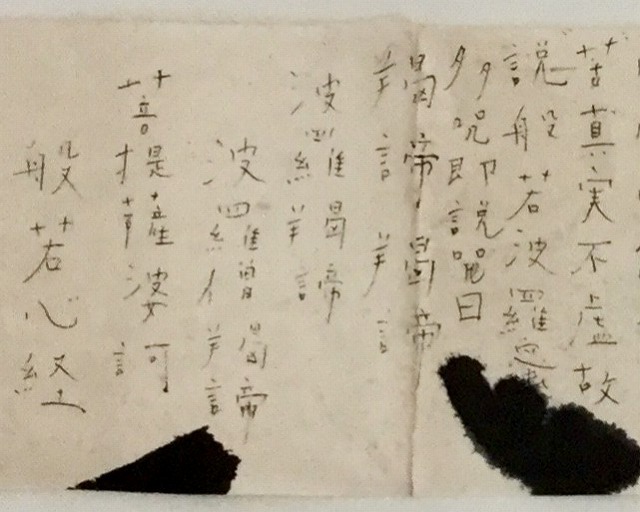 苦真実不虚故
説般若波羅蜜
多呪即説呪曰
羯諦羯諦
波羅羯諦
波羅僧羯諦
菩提薩婆訶
般若心経